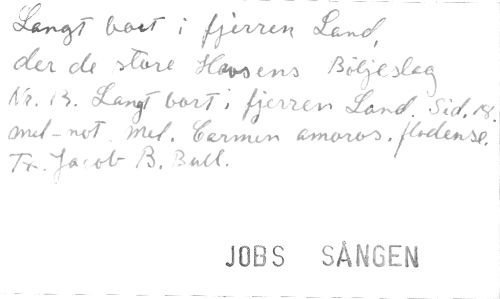 Langt bort i fjerren Land,
der de store Havsens Böljeslag
Nr. 13. Langt bort i fjerren Land. Sid. 18.
mel-not. Mel. Carmen amoros. flodense.
Tx. Jacob B. Bull.
JOBS SÅNGEN